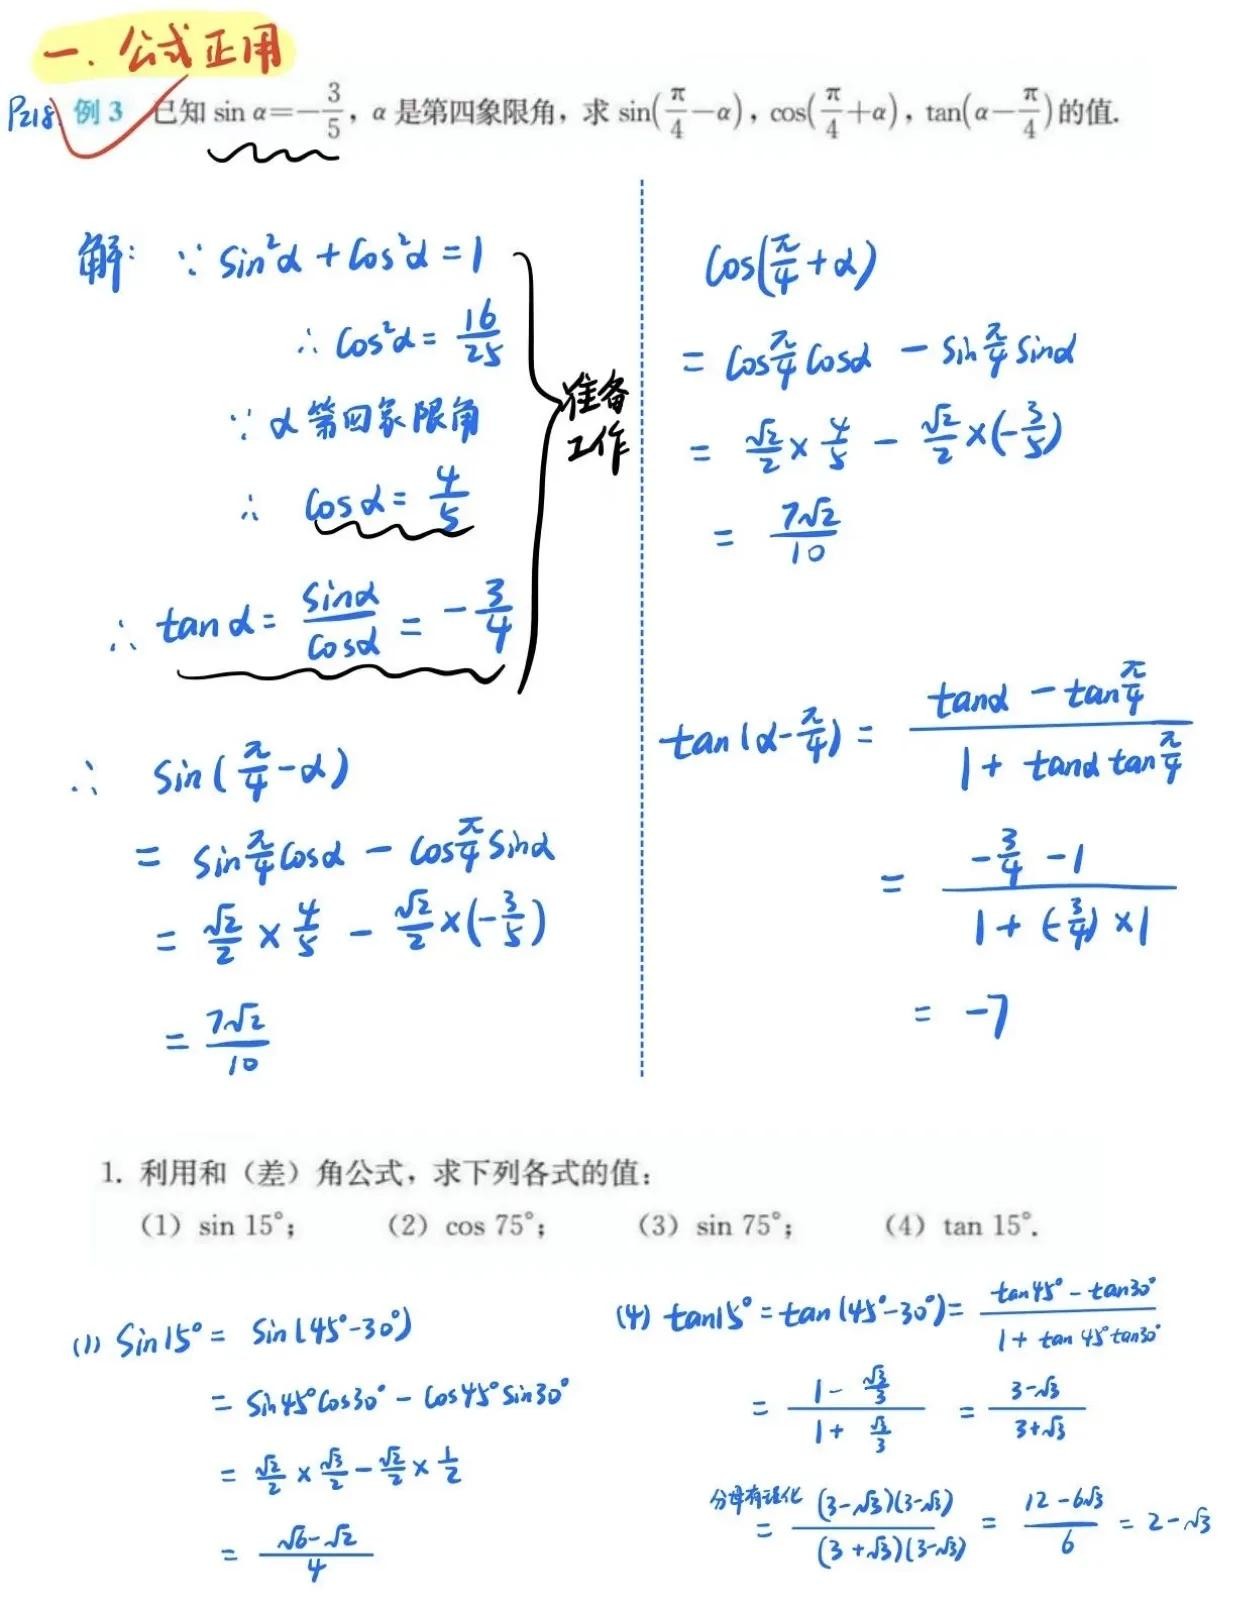 一. 公式正用
P218 例 3 已知 sin α=-3/5，α 是第四象限角，求 sin(π/4-α)，cos(π/4+α)，tan(α-π/4)的值.
解: ∵ sin²α + cos²α = 1
∴ cos²α = 16/25
∵ α 第四象限角
∴ cosα = 4/5
∴ tanα = sinα/cosα = -3/4
准备
工作
∴ sin(π/4-α)
= sinπ/4cosα - cosπ/4sinα
= √2/2 × 4/5 - √2/2×(-3/5)
= 7√2/10
cos(π/4+α)
= cosπ/4cosα - sinπ/4sinα
= √2/2 × 4/5 - √2/2×(-3/5)
= 7√2/10
tan(α-π/4) = (tanα - tanπ/4)/(1 + tanα tanπ/4)
= (-3/4 - 1)/(1 + (-3/4)×1)
= -7
1. 利用和（差）角公式，求下列各式的值：
（1）sin 15°； （2）cos 75°； （3）sin 75°； （4）tan 15°.
(1) sin15° = sin(45°-30°)
= sin45°cos30° - cos45°sin30°
= √2/2 × √3/2 - √2/2 × 1/2
= (√6-√2)/4
(4) tan15° = tan(45°-30°) = (tan45° - tan30°)/(1 + tan45°tan30°)
= (1 - √3/3)/(1 + √3/3) = (3-√3)/(3+√3)
分母有理化 = (3-√3)(3-√3)/(3+√3)(3-√3) = (12-6√3)/6 = 2-√3